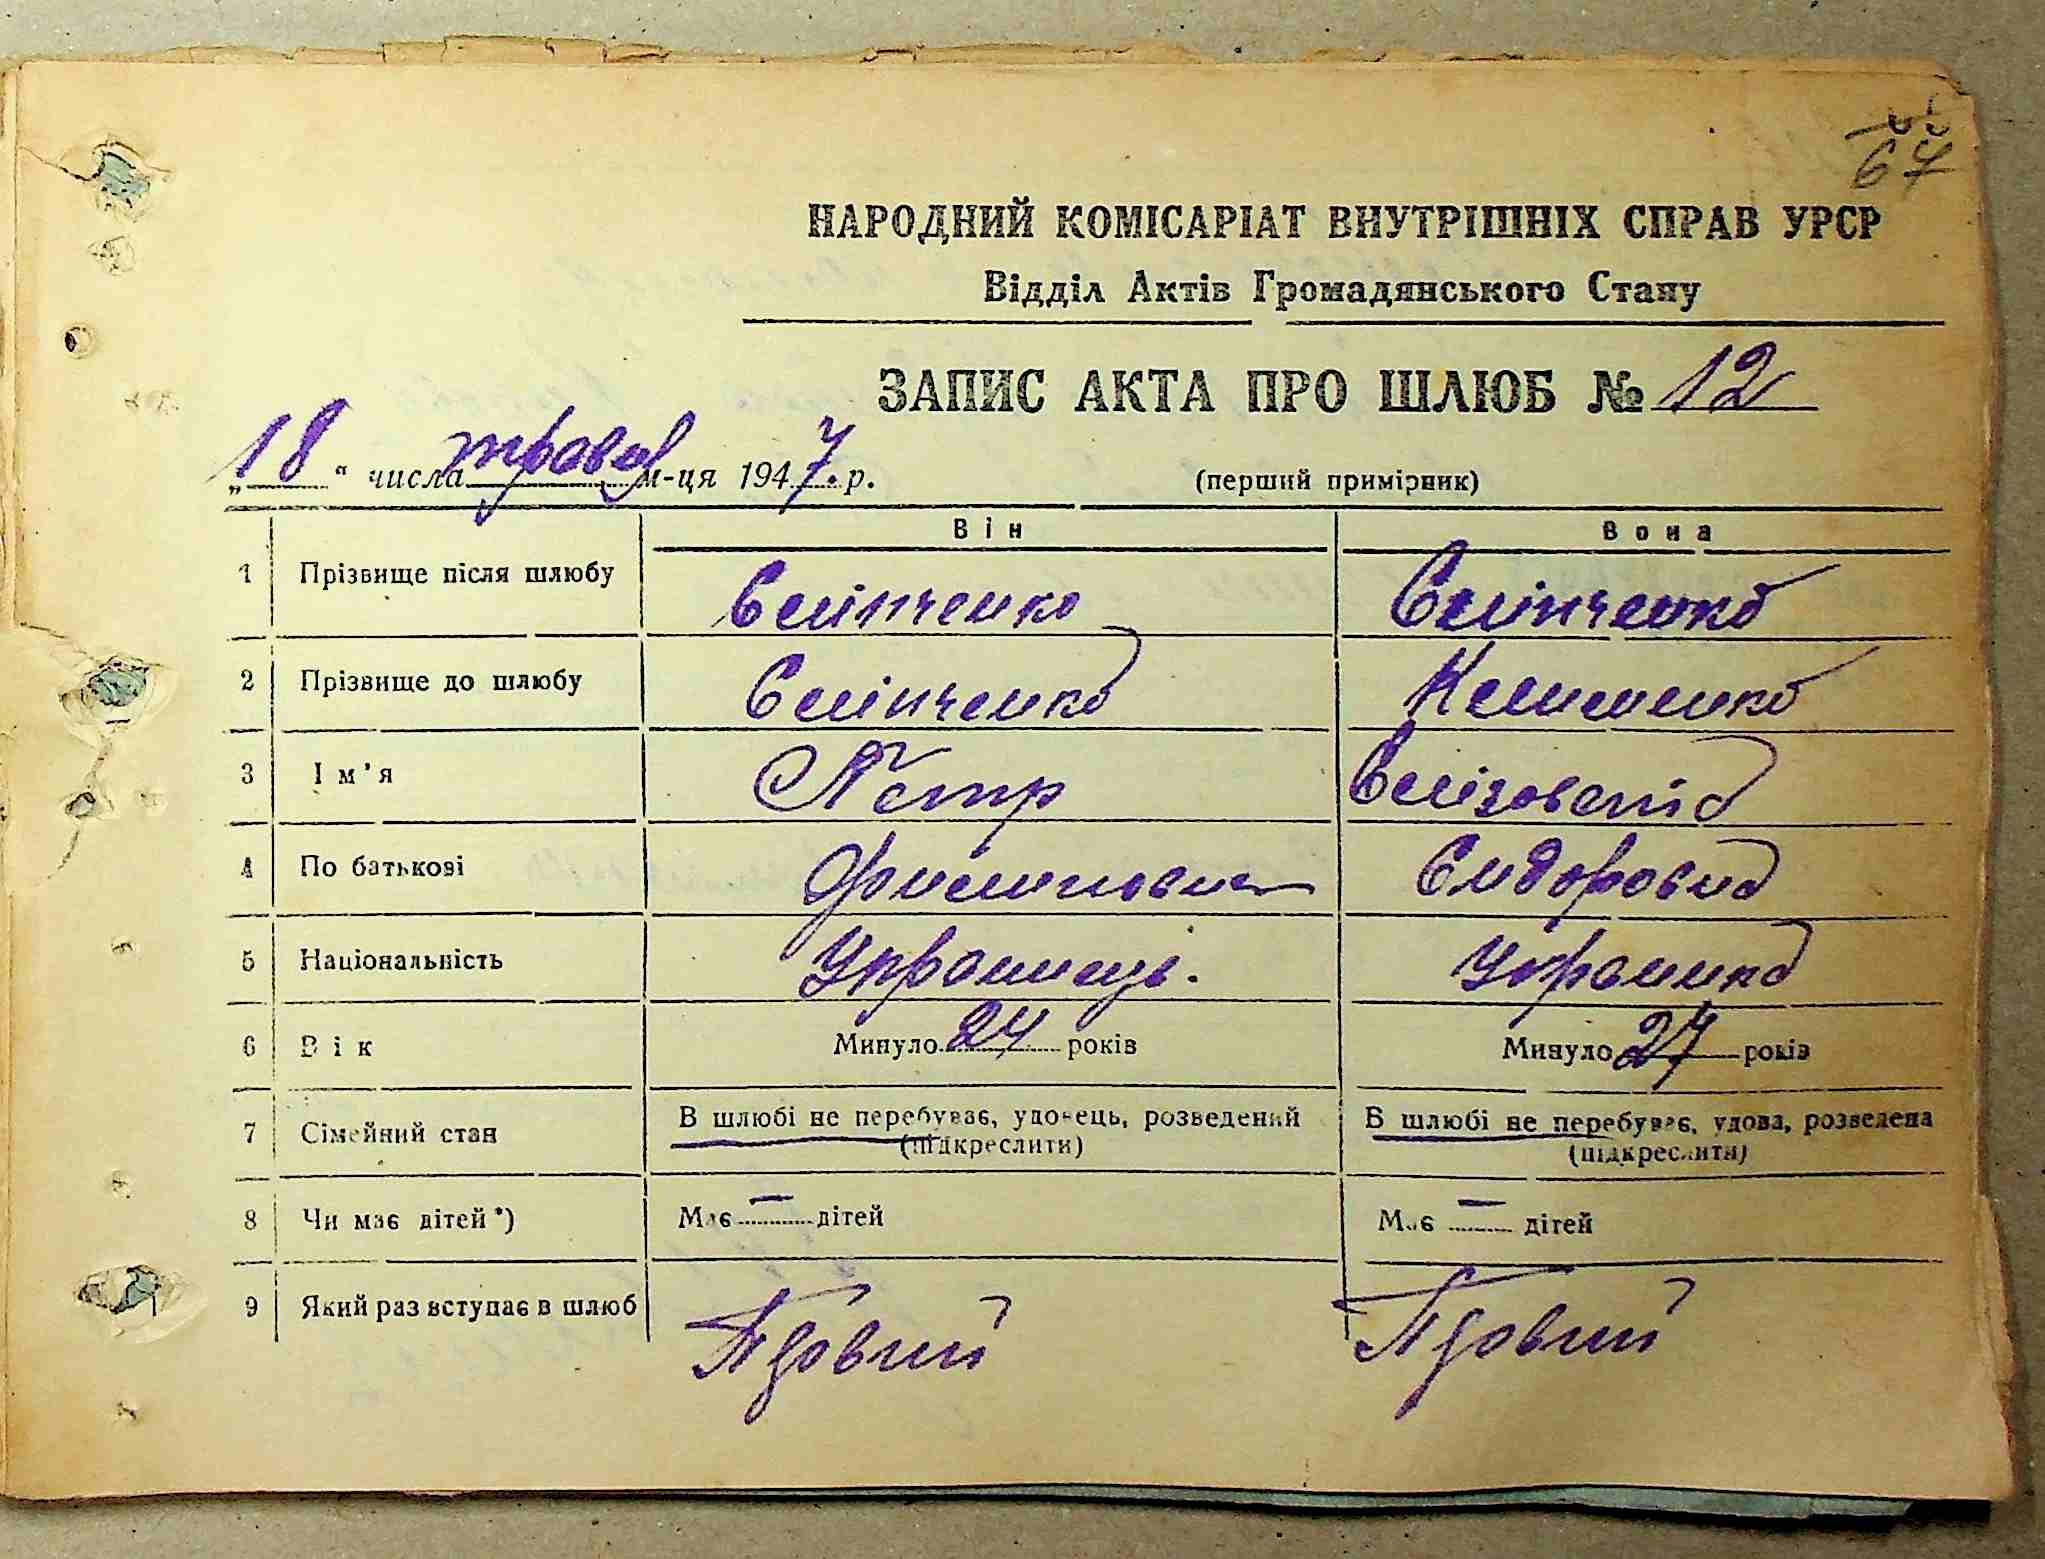 67
НАРОДНИЙ КОМІСАРІАТ ВНУТРІШНІХ СПРАВ УРСР
Відділ Актів Громадянського Стану
ЗАПИС АКТА ПРО ШЛЮБ № 12
„18“ числа травня м-ця 1947. р. (перший примірник)
Він Вона
1 Прізвище після шлюбу Єлінченко Єлінченко
2 Прізвище до шлюбу Єлінченко
3 Ім'я Пётр Єлізовета
4 По батькові Сидоровна
5 Національність Українець. Українка
6 Вік Минуло 24 років Минуло 27 років
7 Сімейний стан В шлюбі не перебуває, удовець, розведений В шлюбі не перебуває, удова, розведена
(підкреслити) (підкреслити)
8 Чи має дітей*) Має — дітей Має — дітей
9 Який раз вступає в шлюб Первий Первий